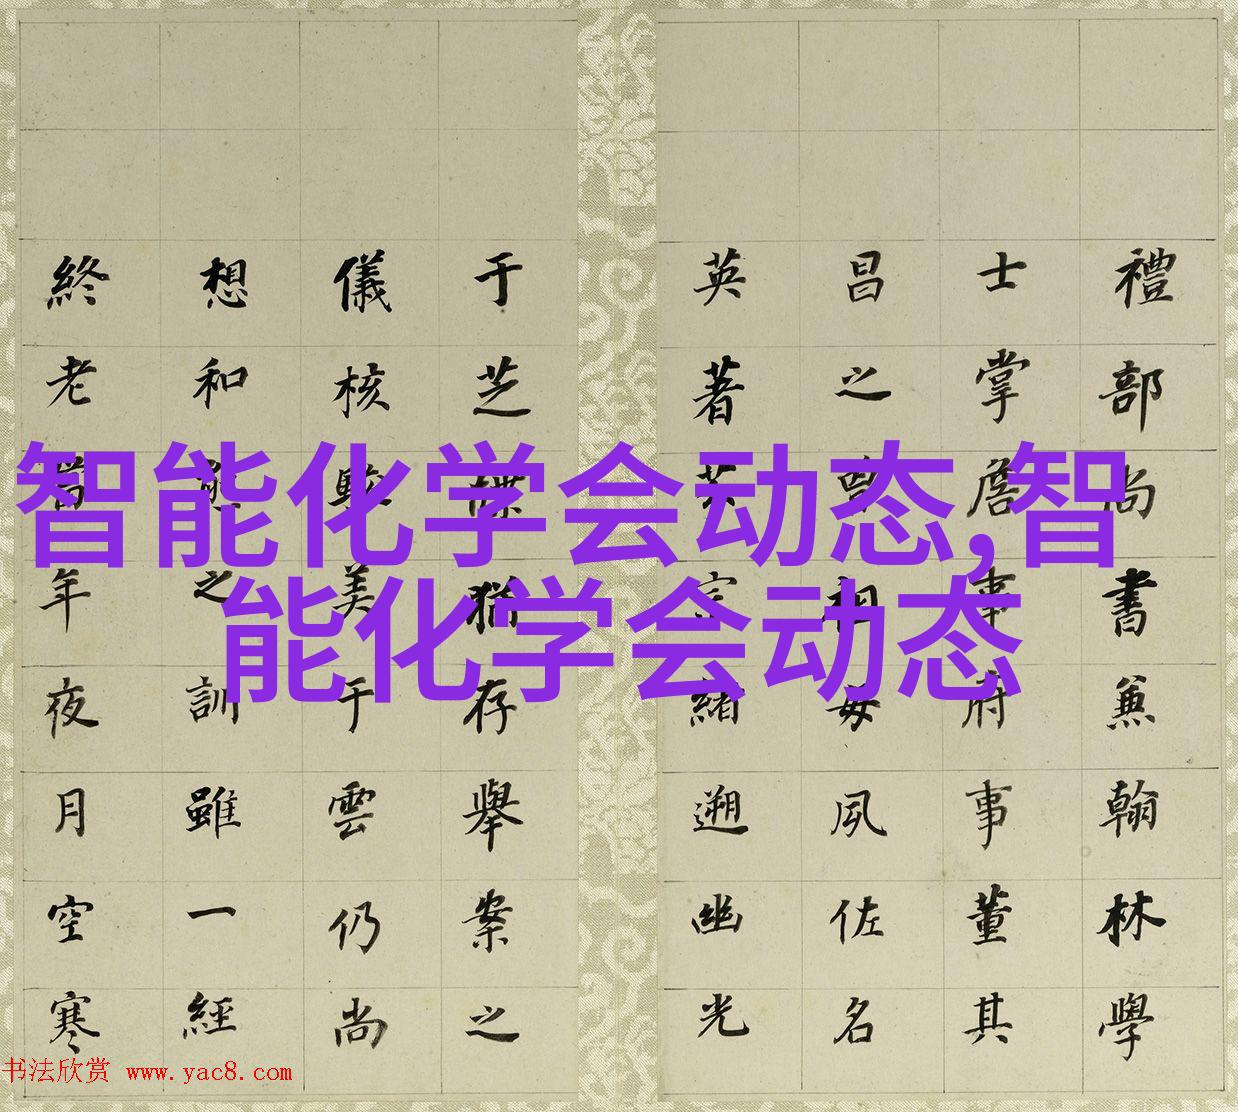 禮部尚書兼翰林學
士掌詹事府事董其
昌之曾祖母夙佐名
英著宗緒遡幽光
于芝牒猶存舉案之
儀核美于雲仍尚
想和熊之訓雖一經
終老年夜月空寒
智能化学会动态,智
能化学会动态
书法欣赏 www.yac8.com